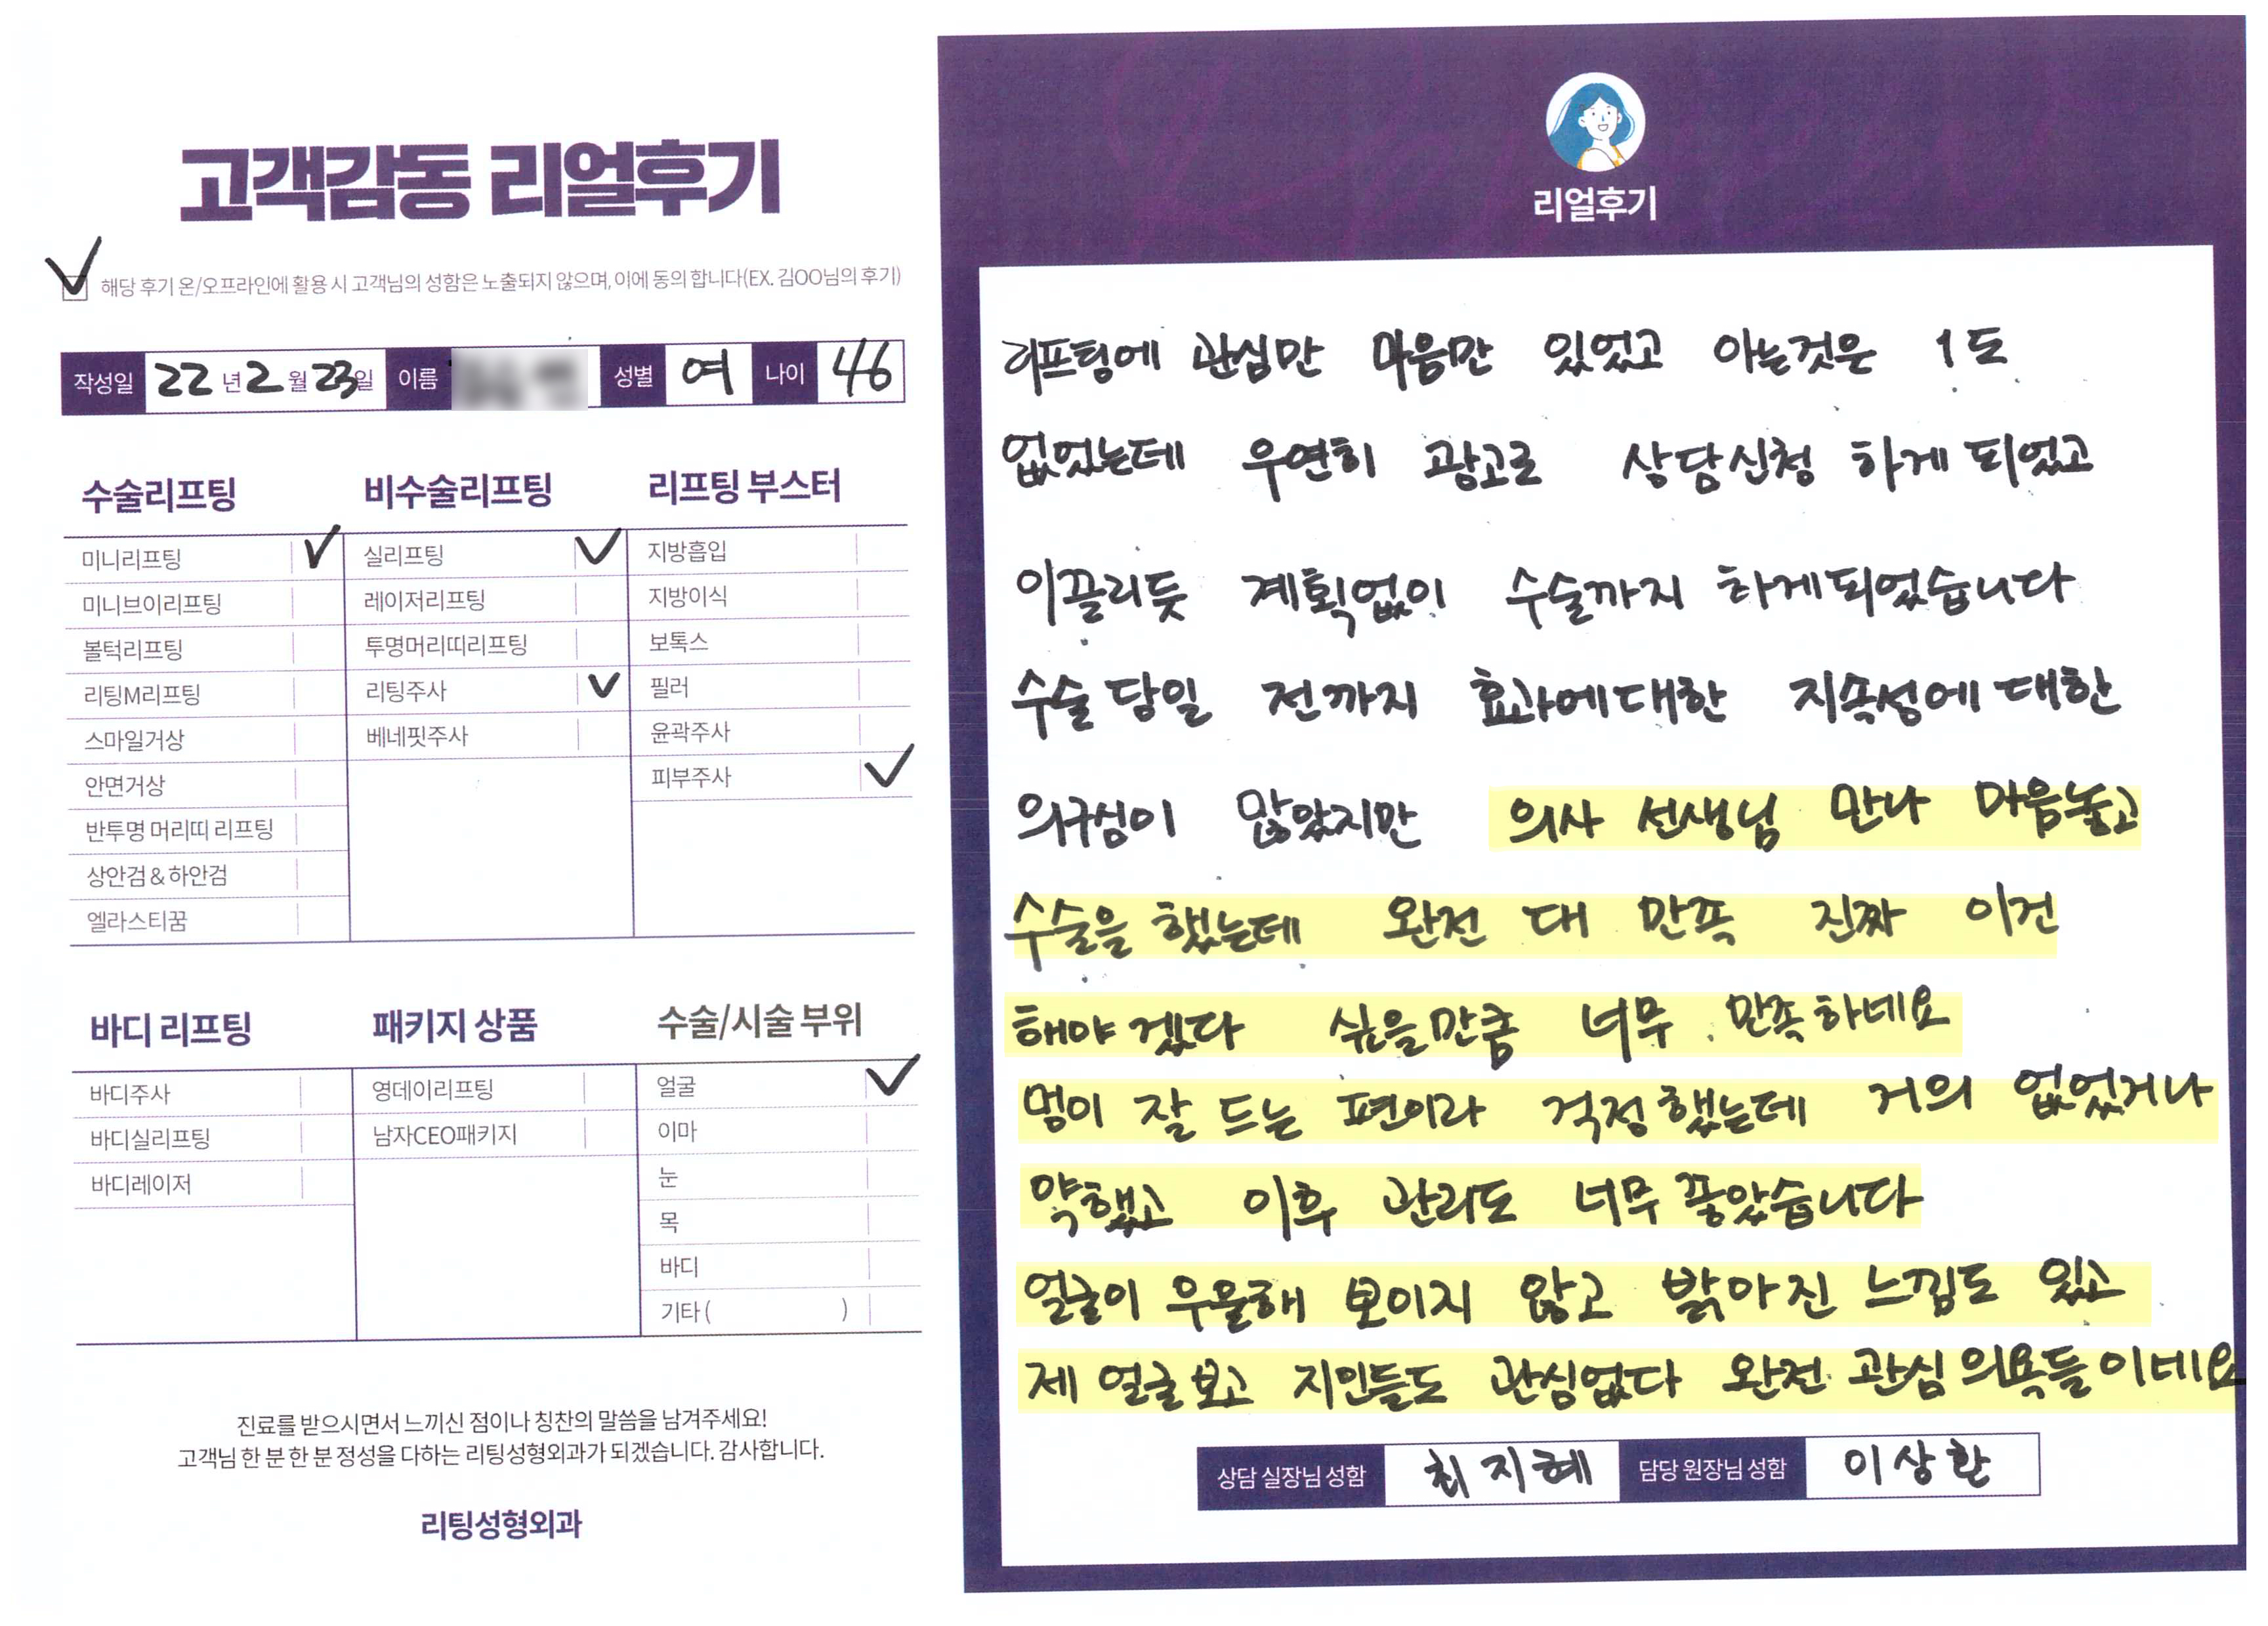 고객감동 리얼후기
해당 후기 온/오프라인에 활용 시 고객님의 성함은 노출되지 않으며, 이에 동의 합니다(EX. 김OO님의 후기)
작성일 22년 2월 23일 이름 성별 여 나이 46
수술리프팅
미니리프팅
미니브이리프팅
볼턱리프팅
리팅M리프팅
스마일거상
안면거상
반투명 머리띠 리프팅
상안검 & 하안검
엘라스티꿈
비수술리프팅
실리프팅
레이저리프팅
투명머리띠리프팅
리팅주사
베네핏주사
리프팅 부스터
지방흡입
지방이식
보톡스
필러
윤곽주사
피부주사
바디 리프팅
바디주사
바디실리프팅
바디레이저
패키지 상품
영데이리프팅
남자CEO패키지
수술/시술 부위
얼굴
이마
눈
목
바디
기타 ( )
진료를 받으시면서 느끼신 점이나 칭찬의 말씀을 남겨주세요!
고객님 한 분 한 분 정성을 다하는 리팅성형외과가 되겠습니다. 감사합니다.
리팅성형외과
리얼후기
리프팅에 관심만 마음만 있었고 아는것은 1도
없었는데 우연히 광고로 상담신청 하게 되었고
이끌리듯 계획없이 수술까지 하게되었습니다
수술 당일 전까지 효과에대한 지속성에 대한
의구심이 많았지만 의사 선생님 만나 마음놓고
수술을 했는데 완전 대 만족 진짜 이건
해야 겠다 싶을만큼 너무 만족하네요
멍이 잘 드는 편이라 걱정했는데 거의 없었거나
약했고 이후 관리도 너무 좋았습니다
얼굴이 우울해 보이지 않고 밝아진 느낌도 있고
제 얼굴보고 지인들도 관심없다 완전 관심 의욕들이네요
상담 실장님 성함 최지혜 담당 원장님 성함 이상환